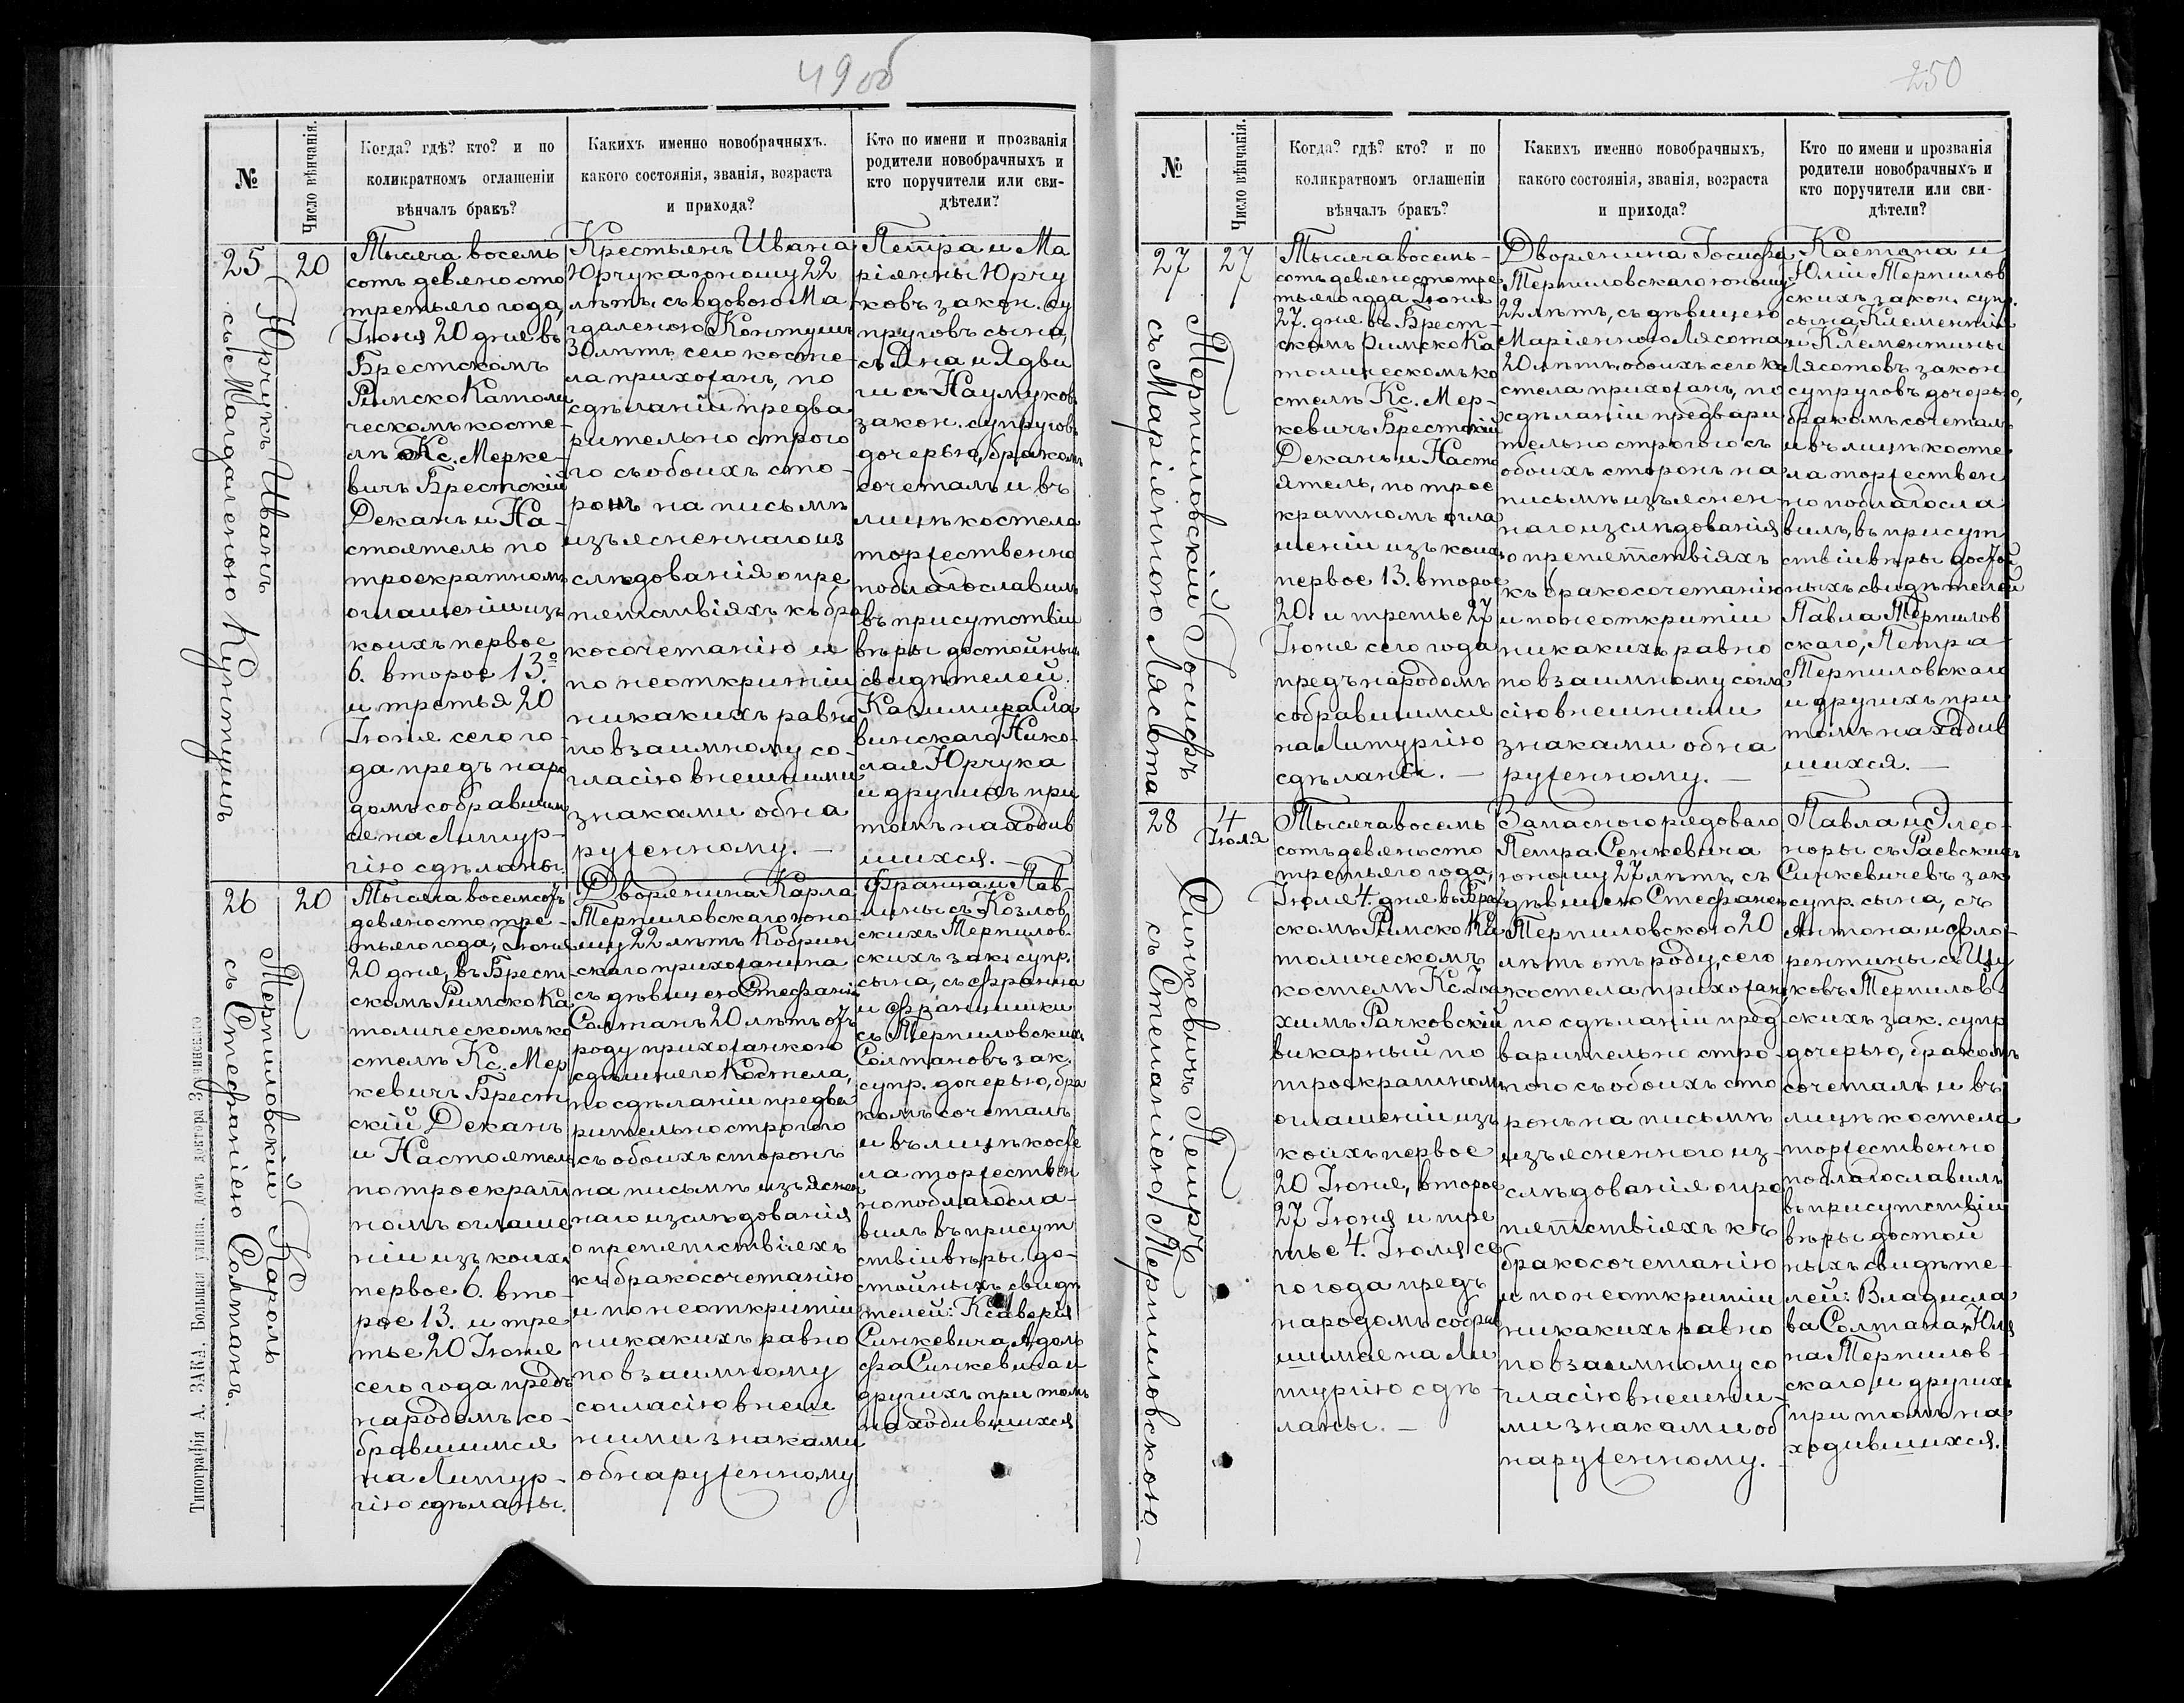 49об
№
Число вѣнчанія.
Когда? гдѣ? кто? и по
коликратномъ оглашеніи
вѣнчалъ бракъ?
Какихъ именно новобрачныхъ.
какого состоянія, званія, возраста
и прихода?
Кто по имени и прозванія
родители новобрачныхъ и
кто поручители или сви-
дѣтели?
25
20
Юрчукъ Иванъ
съ Магдаленою Кунтушъ
Тысяча восемь
сотъ девяносто
третьяго года,
Іюня 20 дня въ
Брестскомъ
Римско Католи
ческомъ косте-
лѣ Кс. Мерке-
вичъ Брестскій
Деканъ и На-
стоятель по
троекратномъ
оглашеніи изъ
коихъ первое
6. второе 13.
и третья 20
Іюня сего го-
да предъ наро
домъ собравшим
ся на Литур-
гію сдѣланы.
Крестьянъ Ивана
Юрчука юному 22
лѣтъ, съ вдовою Ма
гдаленою Контушъ
30 лѣтъ сего косте-
ла прихожанъ, по
сдѣланіи предва
рительно строго
го съ обоихъ сто-
ронъ на письмѣ
изъясненнаго из
слѣдованія о пре
пятствіяхъ къ бра
косочетанію и
по неоткрытіи
никакихъ равно
по взаимному со-
гласію внешними
знаками обна
руженному. —
Петра и Ма
ріянны Юрчу
ковъ закон. су
пруговъ сына,
съ Яна и Ядви
ги съ Наумуковъ
закон. супруговъ
дочерью, бракомъ
сочеталъ и въ
лицѣ костела
торжественно
поблагославилъ
въ присутствіи
вѣры достойныхъ
свидѣтелей.
Казимира Сла
винскаго, Нико-
лая Юрчука
и другихъ при
томъ находив
шихся. —
26
20
Терпиловскій Кароль
съ Стефаніею Солтанъ. —
Тысяча восемсотъ
девяносто тре-
тьяго года, Іюня
20 дня, въ Брест
скомъ Римско Ка
толическомъ ко
стелѣ Кс. Мер
кевичъ Брест
скій Деканъ
и Настоятель
по троекрат
номъ оглаше
ніи изъ коихъ
первое 6. вто-
рое 13. и тре
тье 20 Іюня
сего года предъ
народомъ со-
бравшимся
на Литур-
гію сдѣланы.
Дворянина Карла
Терпиловскаго юно-
му 22 лѣтъ Кобрин
скаго прихожанина
съ дѣвицею Стефаніею
Солтанъ 20 лѣтъ отъ
роду прихожанкою
сдѣшняго Костела,
по сдѣланіи предва
рительно строгого
съ обоихъ сторонъ
на письмѣ изъяснен
наго изслѣдованія
о препятствіяхъ
къ бракосочетанію
и по неоткрытіи
никакихъ равно
по взаимному
согласію внеш
ними знаками
обнаруженному
Франца и Пав
лины съ Козлов
скихъ Терпилов-
скихъ зак. супр.
сына, съ Франца
и Францишки
съ Терпиловскихъ
Солтановъ зак.
супр. дочерью, бра
комъ сочеталъ
и въ лицѣ косте
ла торжествен
но поблагосла-
вилъ въ присут
ствіи вѣры до-
стойныхъ свидѣ
телей: Ксаверія
Синкевича, Адоль
фа Синкевича и
другихъ при томъ
находившихся
Типографія А. ЗАКА. Большая улица, домъ доктора
250
№
Число вѣнчанія.
Когда? гдѣ? кто? и по
коликратномъ оглашеніи
вѣнчалъ бракъ?
Какихъ именно новобрачныхъ,
какого состоянія, званія, возраста
и прихода?
Кто по имени и прозванія
родители новобрачныхъ и
кто поручители или сви-
дѣтели?
27
27
Терпиловскій Іосифъ
съ Маріянною Лясота
Тысяча восемь-
сотъ девяносто тре
тьяго года Іюня
27. дня въ Брест-
скомъ Римско Ка
толическомъ ко
стелѣ Кс. Мер-
кевичъ Брестскій
Деканъ и Насто
ятель, по трое
кратномъ огла
шеніи изъ коихъ
первое 13. второе
20. и третье 27
Іюня сего года
предъ народомъ
собравшимся
на Литургію
сдѣланы. —
Дворянина Іосифа
Терпиловскаго юному
22 лѣтъ, съ дѣвицею
Маріянною Лясота
20 лѣтъ, обоихъ сего ко
стела прихожанъ, по
сдѣланіи предвари
тельно строгого съ
обоихъ сторонъ на
письмѣ изъяснен-
наго изслѣдованія
о препятствіяхъ
къ бракосочетанію
и по неоткрытіи
никакихъ равно
по взаимному согла
сію внешними
знаками обна
руженному. —
Каетана и
Юліи Терпилов
скихъ закон. супр.
сына, Клементія
и Клементины
Лясотовъ закон
супруговъ дочерью,
бракомъ сочеталъ
и въ лицѣ косте
ла торжествен
но поблагосла
вилъ, въ присут
ствіи вѣры достой
ныхъ свидѣтелей
Павла Терпилов
скаго, Петра
Терпиловскаго
и другихъ при
томъ находив
шихся. —
28
4
Іюля
Синкевичъ Петръ
съ Стефаніею Терпиловскою. —
Тысяча восемь
сотъ девяносто
третьяго года,
Іюля 4. дня въ Брест
скомъ Римско Ка
толическомъ
костелѣ Кс. Іоа
химъ Рачковскій
викарный по
троекратномъ
оглашеніи изъ
коихъ первое
20 Іюня, второе
27 Іюня и тре
тье 4. Іюля се
го года предъ
народомъ собрав
шимся на Ли
тургію сдѣ-
ланы. —
Запасного рядоваго
Петра Сенкевича
юному 27 лѣтъ, съ
дѣвицею Стефаніею
Терпиловскою 20
лѣтъ отъ роду, сего
костела прихожанъ,
по сдѣланіи пред
варительно стро-
гого съ обоихъ сто
ронъ на письмѣ
изъясненного из-
слѣдованія о пре
пятствіяхъ къ
бракосочетанію
и по неоткрытіи
никакихъ равно
по взаимному со
гласію внешни-
ми знаками об
наруженному. —
Павла и Элео-
норы съ Раевскихъ
Синкевичевъ зак.
супр. сына, съ
Антона и Фло-
рентины съ Цу
ковъ Терпилов-
скихъ зак. супр
дочерью, бракомъ
сочеталъ и въ
лицѣ костела
торжественно
поблагославилъ
въ присутствіи
вѣры достой
ныхъ свидѣте-
лей: Владисла
ва Солтана, Юлі
на Терпилов-
скаго, и другихъ
при томъ на
ходившихся.